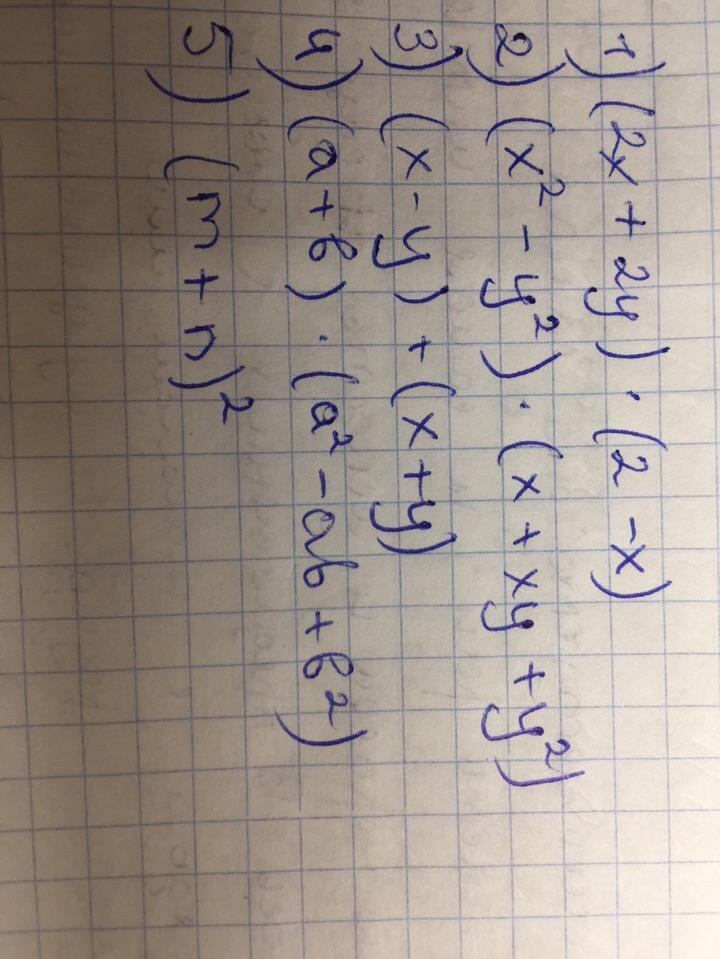 1) (2x + 2y) · (2 - x)
2) (x² - y²) · (x + xy + y²)
3) (x - y) + (x + y)
4) (a + b) · (a² - ab + b²)
5) (m + n)²